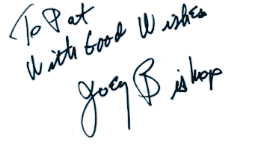 To Pat
With Good Wishes
Joey Bishop